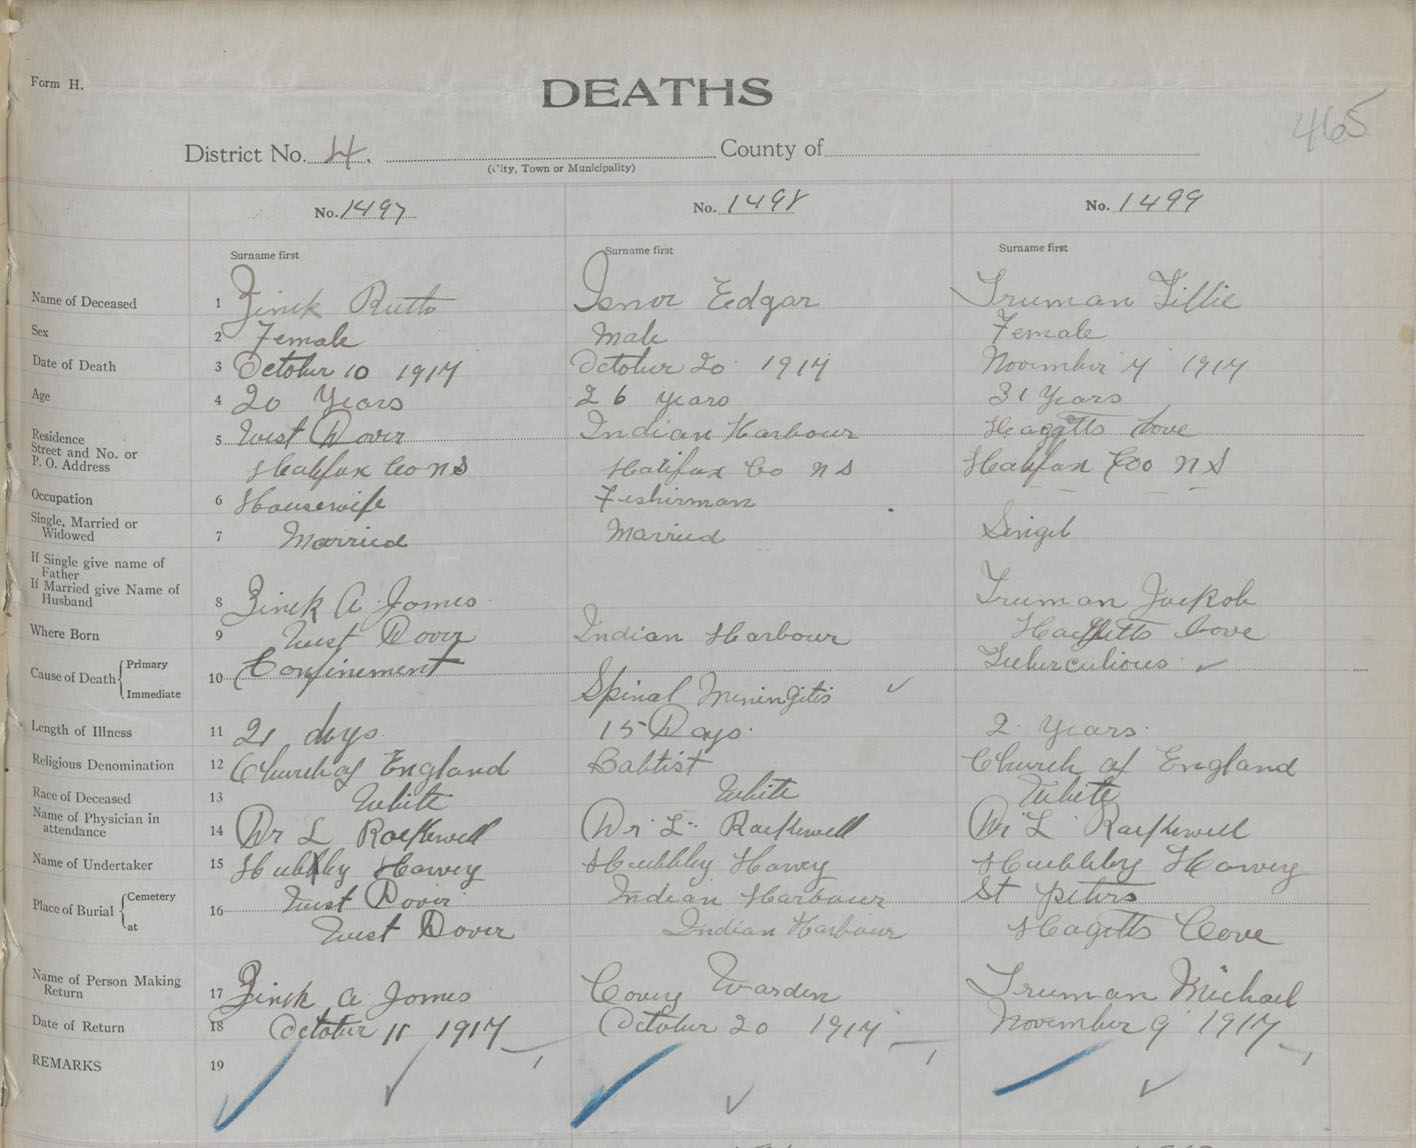 Form H.
DEATHS
465
District No. 4. County of
(City, Town or Municipality)
No. 1497 No. 1498 No. 1499
Surname first Surname first Surname first
Name of Deceased 1 Zinck Ruth Isnor Edgar Truman Tillie
Sex 2 Female Male Female
Date of Death 3 October 10 1917 October 20 1917 November 7 1917
Age 4 20 Years 26 years 31 Years
Residence Street and No. or P. O. Address 5 West Dover Indian Harbour Hagatts Cove
Halifax Co N S Halifax Co N S Halifax Coo N S
Occupation 6 Housewife Fisherman
Single, Married or Widowed 7 Married Married Singel
If Single give name of Father
If Married give Name of Husband 8 Zinck A James Truman Jackob
Where Born 9 West Dover Indian Harbour Cove
Cause of Death Primary 10 Confinement Tuberculious
Immediate Spinal Meningitis
Length of Illness 11 21 days 15 Days 2 Years
Religious Denomination 12 Church of England Babtist Church of England
Race of Deceased 13 White White White
Name of Physician in attendance 14 Dr L Rockwell Dr L Rockwell Dr L Rockwell
Name of Undertaker 15 Hubbley Harvey Hubbley Harvey Hubbley Harvey
Place of Burial Cemetery 16 West Dover Indian Harbour St Peters
at West Dover Indian Harbour Hagetts Cove
Name of Person Making Return 17 Zinck A James Covey Warden Truman Michael
Date of Return 18 October 11 1917 October 20 1917 November 9 1917
REMARKS 19